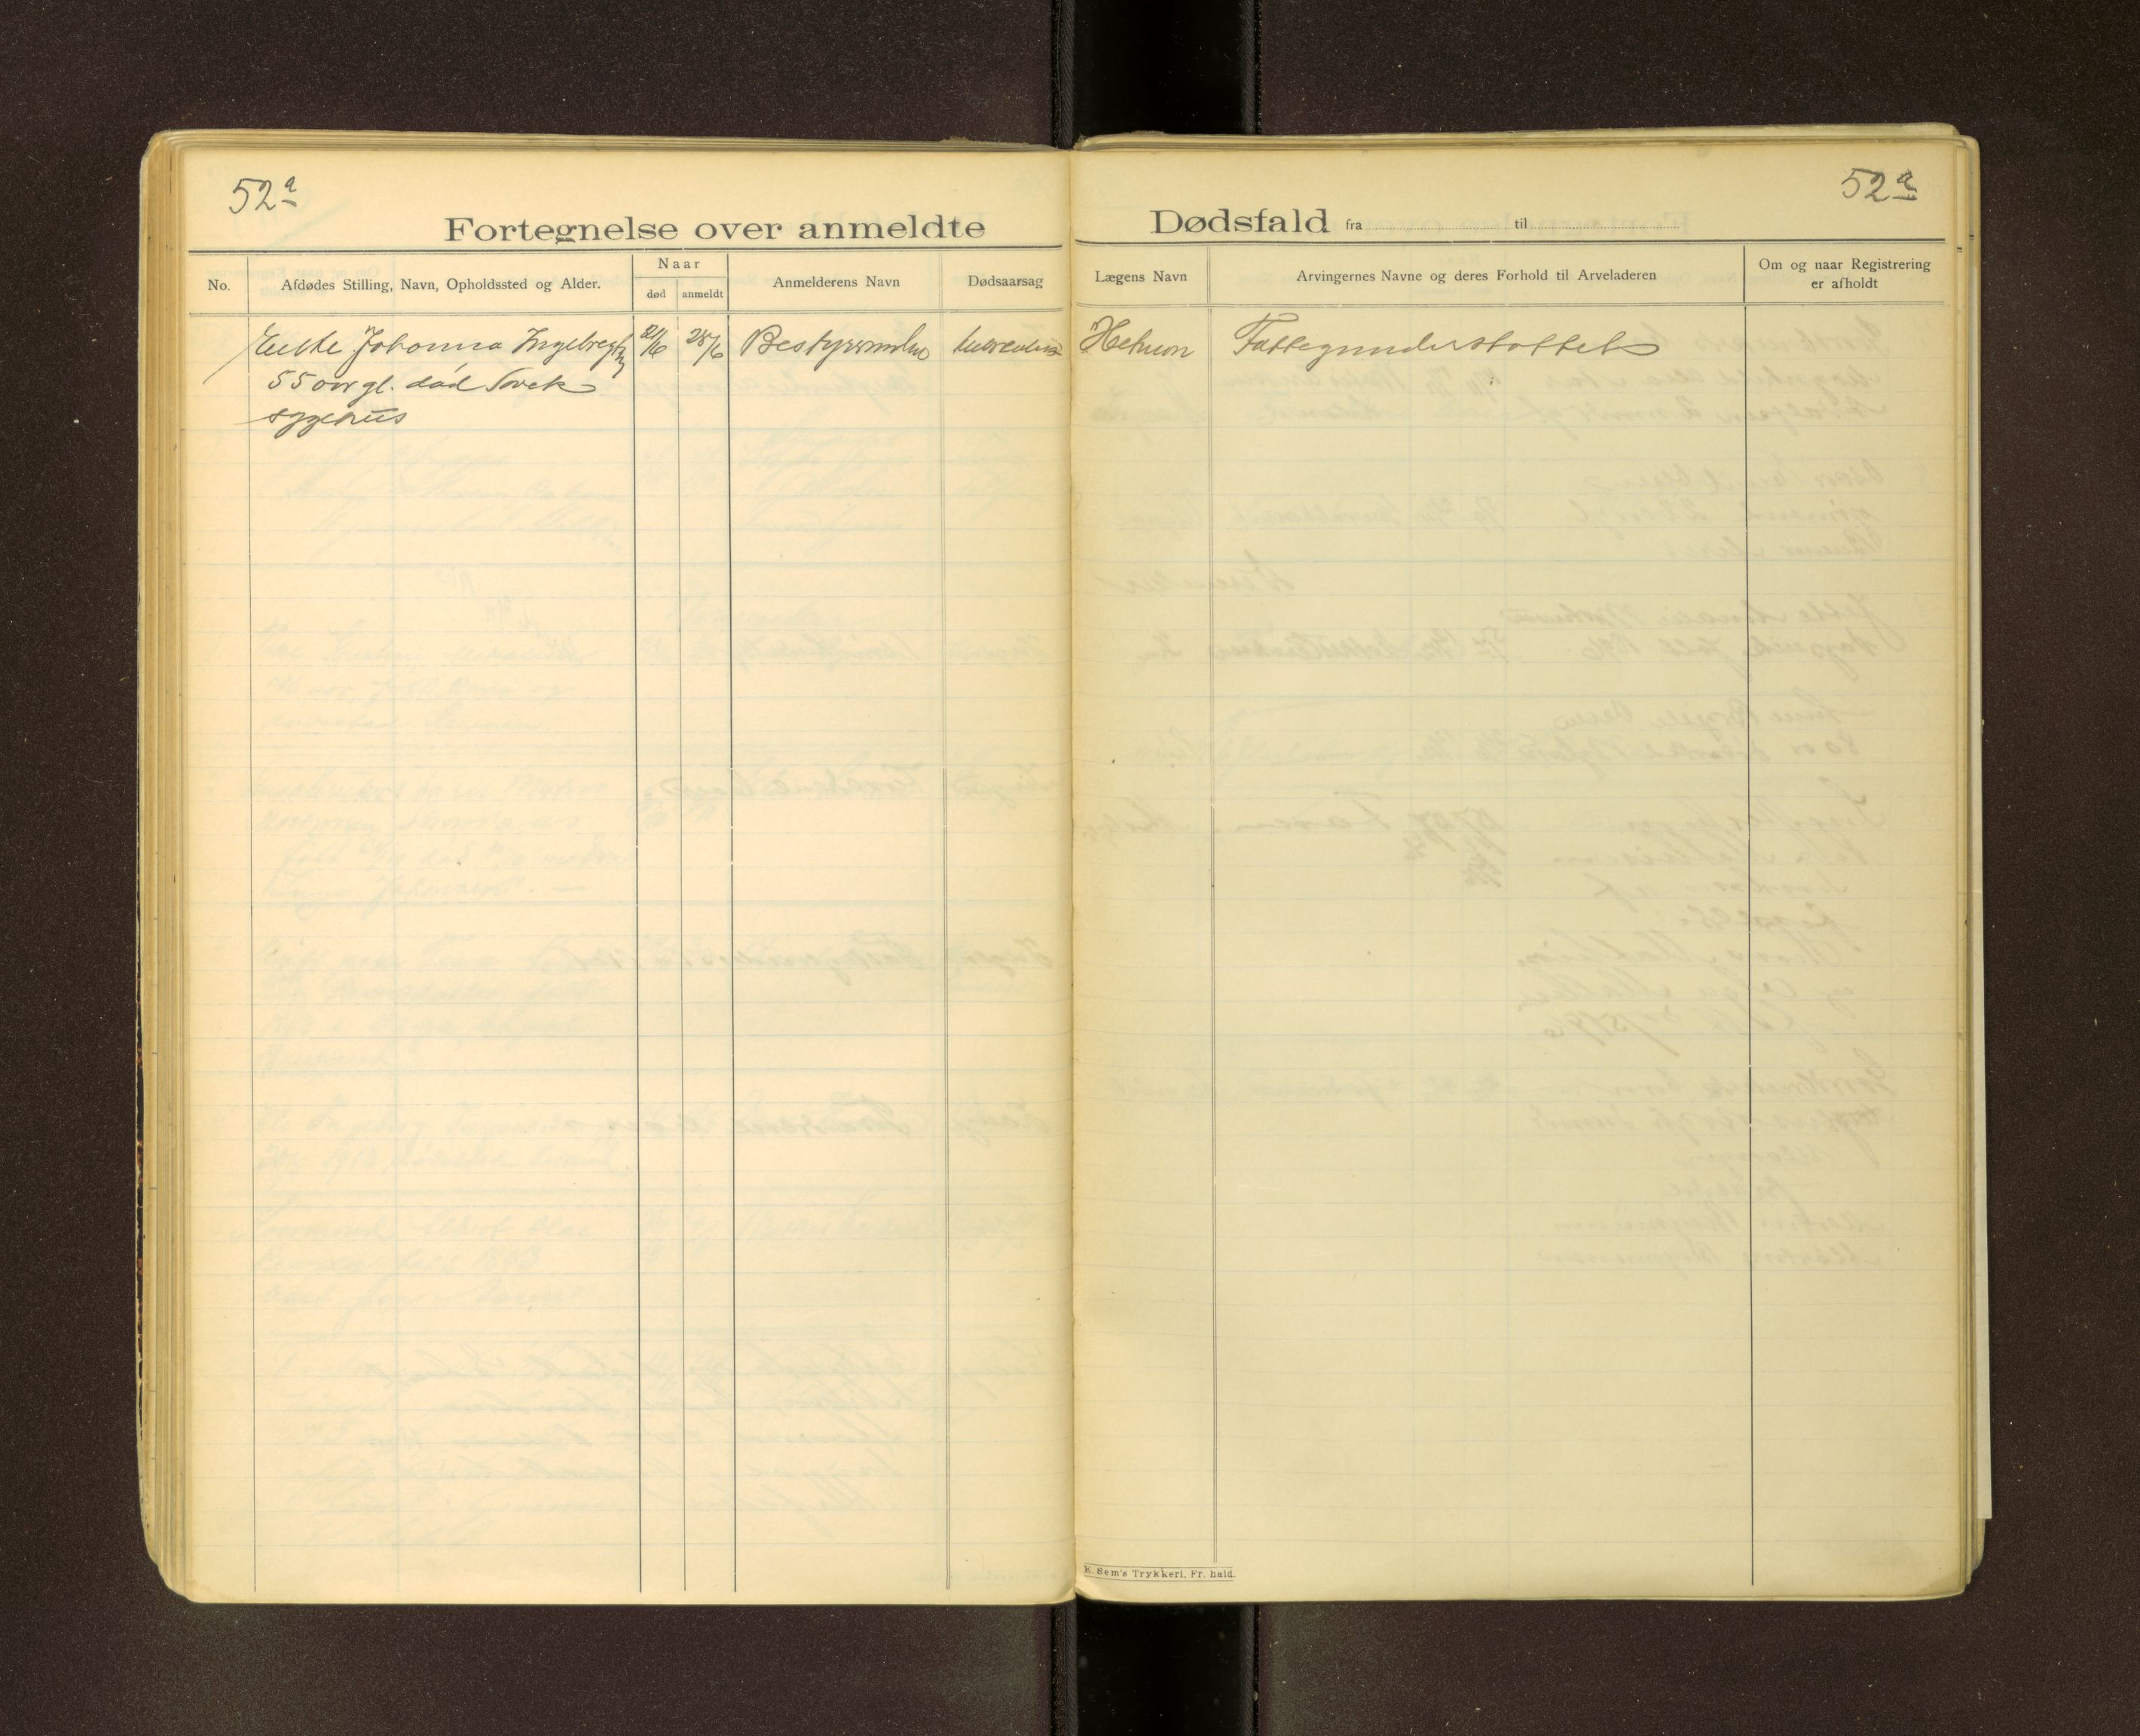 52a
52a
Fortegnelse over anmeldte Dødsfald fra til
No.
Afdødes Stilling, Navn, Opholdssted og Alder.
Naar
død
anmeldt
Anmelderens Navn
Dødsaarsag
Lægens Navn
Arvingernes Navne og deres Forhold til Arveladeren
Om og naar Registrering
er afholdt
Enke Johanna Ingebregts 21/6 25/6 Bestyrerinden tuberculose
55 aar gl. død
sygehus
Fattigunderstøttet
E. Sem's Trykkeri, Fr. hald.